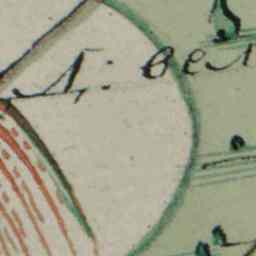 Д: вел